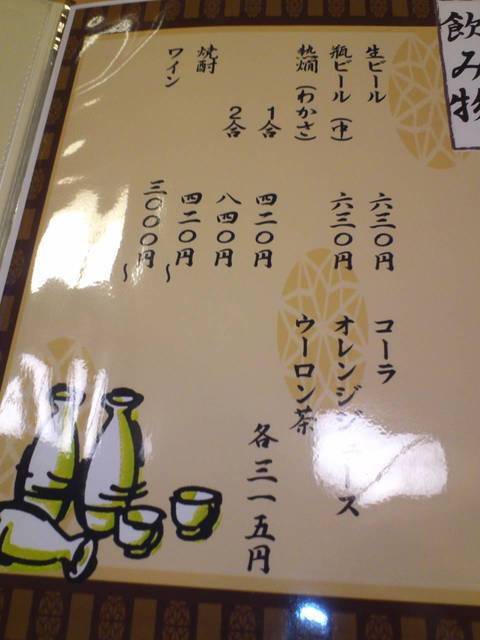 飲み物
生ビール 六三〇円
瓶ビール（中） 六三〇円
熱燗（わかさ）
1合 四二〇円
2合 八四〇円
焼酎 四二〇円～
ワイン 三〇〇〇円～
コーラ
オレンジジュース
ウーロン茶
各三一五円